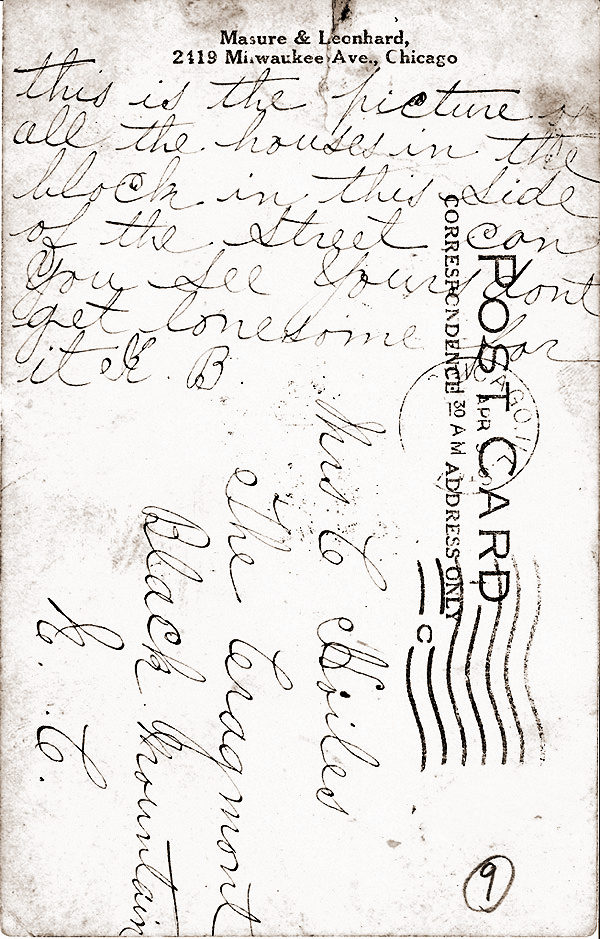 Masure & Leonhard,
2419 Milwaukee Ave., Chicago
this is the picture of
all the houses in the
block in this side
of the street can
you see yours dont
get lonesome for
it K. B.
POST CARD
CORRESPONDENCE
ADDRESS ONLY
CHICAGO
APR
30 AM
C
Mrs C Hoiles
The Cragmont
Black Mountain
N. C.
9